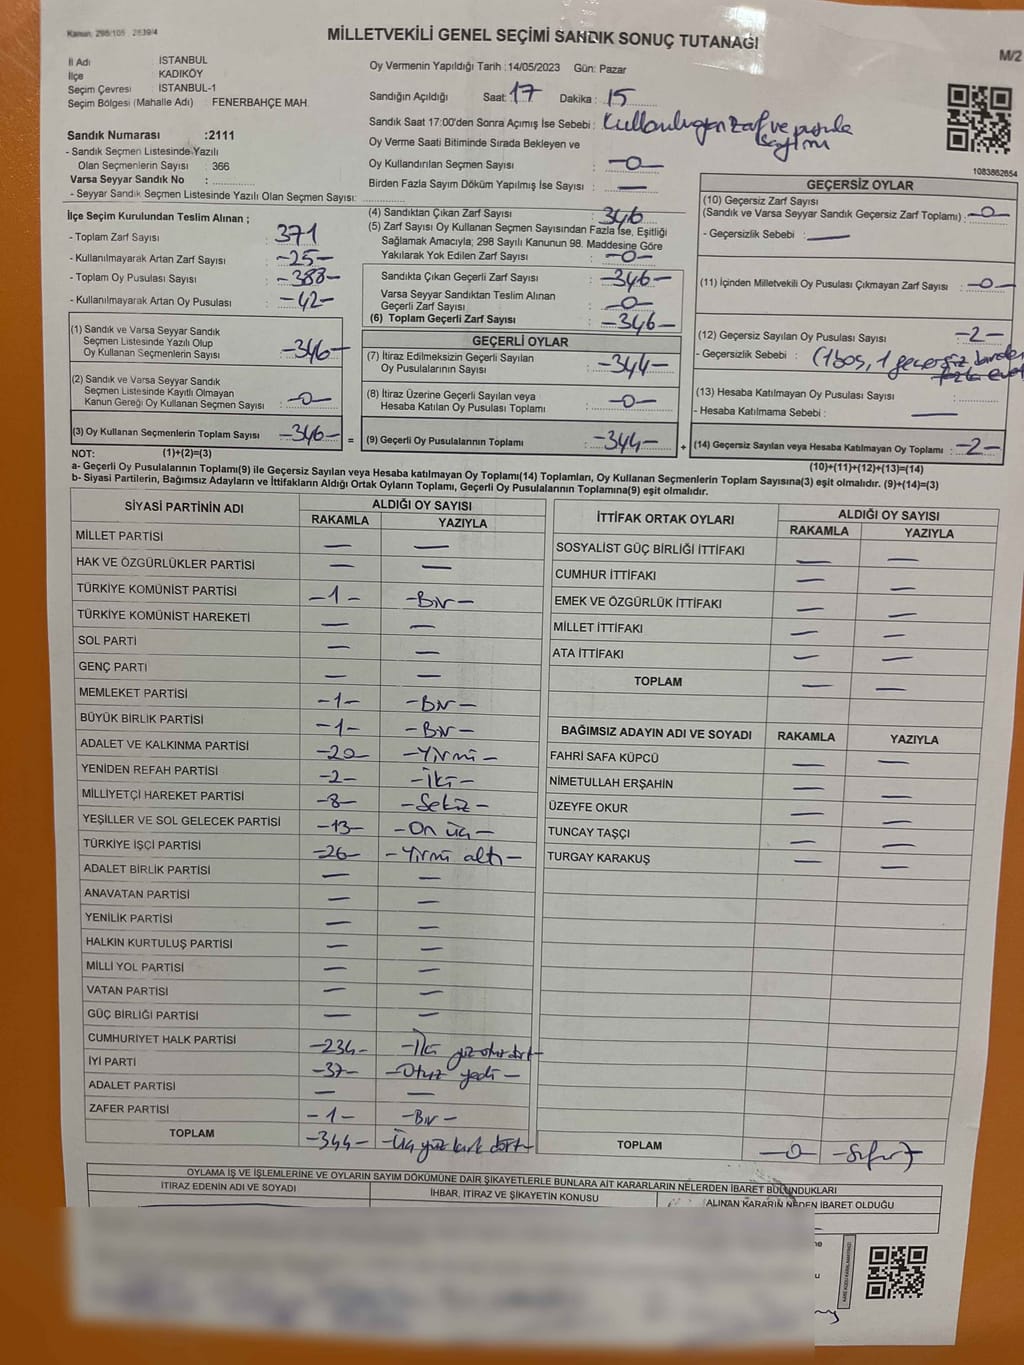 Kanun: 298/105 2839/4
MİLLETVEKİLİ GENEL SEÇİMİ SANDIK SONUÇ TUTANAĞI
M/2
İl Adı İSTANBUL
İlçe KADIKÖY
Seçim Çevresi İSTANBUL-1
Seçim Bölgesi (Mahalle Adı) : FENERBAHÇE MAH.
Sandık Numarası :2111
- Sandık Seçmen Listesinde Yazılı
Olan Seçmenlerin Sayısı : 366
Varsa Seyyar Sandık No :
- Seyyar Sandık Seçmen Listesinde Yazılı Olan Seçmen Sayısı:
Oy Vermenin Yapıldığı Tarih :14/05/2023 Gün: Pazar
Sandığın Açıldığı Saat: 17 Dakika : 15
Sandık Saat 17:00'den Sonra Açımış İse Sebebi : Kullanılmayan zarf ve pusula
sayımı
Oy Verme Saati Bitiminde Sırada Bekleyen ve
Oy Kullandırılan Seçmen Sayısı : -0-
Birden Fazla Sayım Döküm Yapılmış İse Sayısı : —
1083862654
İlçe Seçim Kurulundan Teslim Alınan ;
- Toplam Zarf Sayısı : 371
- Kullanılmayarak Artan Zarf Sayısı : -25-
- Toplam Oy Pusulası Sayısı : -388-
- Kullanılmayarak Artan Oy Pusulası : -42-
(1) Sandık ve Varsa Seyyar Sandık
Seçmen Listesinde Yazılı Olup
Oy Kullanan Seçmenlerin Sayısı : -346-
(2) Sandık ve Varsa Seyyar Sandık
Seçmen Listesinde Kayıtlı Olmayan
Kanun Gereği Oy Kullanan Seçmen Sayısı : -0-
(3) Oy Kullanan Seçmenlerin Toplam Sayısı -346- =
(4) Sandıktan Çıkan Zarf Sayısı : 346
(5) Zarf Sayısı Oy Kullanan Seçmen Sayısından Fazla İse, Eşitliği
Sağlamak Amacıyla; 298 Sayılı Kanunun 98. Maddesine Göre
Yakılarak Yok Edilen Zarf Sayısı : -0-
Sandıkta Çıkan Geçerli Zarf Sayısı : -346-
Varsa Seyyar Sandıktan Teslim Alınan
Geçerli Zarf Sayısı : -0-
(6) Toplam Geçerli Zarf Sayısı : -346-
GEÇERLİ OYLAR
(7) İtiraz Edilmeksizin Geçerli Sayılan
Oy Pusulalarının Sayısı : -344-
(8) İtiraz Üzerine Geçerli Sayılan veya
Hesaba Katılan Oy Pusulası Toplamı : -0-
(9) Geçerli Oy Pusulalarının Toplamı : -344- +
GEÇERSİZ OYLAR
(10) Geçersiz Zarf Sayısı
(Sandık ve Varsa Seyyar Sandık Geçersiz Zarf Toplamı) : -0-
- Geçersizlik Sebebi : —
(11) İçinden Milletvekili Oy Pusulası Çıkmayan Zarf Sayısı : -0-
(12) Geçersiz Sayılan Oy Pusulası Sayısı : -2-
- Geçersizlik Sebebi : (1 boş, 1 geçersiz birden
fazla evet
(13) Hesaba Katılmayan Oy Pusulası Sayısı :
- Hesaba Katılmama Sebebi : —
(14) Geçersiz Sayılan veya Hesaba Katılmayan Oy Toplamı : -2-
NOT: (1)+(2)=(3)
(10)+(11)+(12)+(13)=(14)
a- Geçerli Oy Pusulalarının Toplamı(9) ile Geçersiz Sayılan veya Hesaba katılmayan Oy Toplamı(14) Toplamları, Oy Kullanan Seçmenlerin Toplam Sayısına(3) eşit olmalıdır. (9)+(14)=(3)
b- Siyasi Partilerin, Bağımsız Adayların ve İttifakların Aldığı Oyların Toplamı, Geçerli Oy Pusulalarının Toplamına(9) eşit olmalıdır.
SİYASİ PARTİNİN ADI ALDIĞI OY SAYISI
RAKAMLA YAZIYLA
MİLLET PARTİSİ — —
HAK VE ÖZGÜRLÜKLER PARTİSİ — —
TÜRKİYE KOMÜNİST PARTİSİ -1- -Bir-
TÜRKİYE KOMÜNİST HAREKETİ — —
SOL PARTİ — —
GENÇ PARTİ — —
MEMLEKET PARTİSİ -1- -Bir-
BÜYÜK BİRLİK PARTİSİ -1- -Bir-
ADALET VE KALKINMA PARTİSİ -20- -Yirmi-
YENİDEN REFAH PARTİSİ -2- -İki-
MİLLİYETÇİ HAREKET PARTİSİ -8- -Sekiz-
YEŞİLLER VE SOL GELECEK PARTİSİ -13- -On üç-
TÜRKİYE İŞÇİ PARTİSİ -26- -Yirmi altı-
ADALET BİRLİK PARTİSİ — —
ANAVATAN PARTİSİ — —
YENİLİK PARTİSİ — —
HALKIN KURTULUŞ PARTİSİ — —
MİLLİ YOL PARTİSİ — —
VATAN PARTİSİ — —
GÜÇ BİRLİĞİ PARTİSİ — —
CUMHURİYET HALK PARTİSİ -234- -İki yüz otuz dört-
İYİ PARTİ -37- -Otuz yedi-
ADALET PARTİSİ — —
ZAFER PARTİSİ -1- -Bir-
TOPLAM -344- -Üç yüz kırk dört-
İTTİFAK ORTAK OYLARI ALDIĞI OY SAYISI
RAKAMLA YAZIYLA
SOSYALİST GÜÇ BİRLİĞİ İTTİFAKI — —
CUMHUR İTTİFAKI — —
EMEK VE ÖZGÜRLÜK İTTİFAKI — —
MİLLET İTTİFAKI — —
ATA İTTİFAKI — —
TOPLAM — —
BAĞIMSIZ ADAYIN ADI VE SOYADI RAKAMLA YAZIYLA
FAHRİ SAFA KÜPCÜ — —
NİMETULLAH ERŞAHİN — —
ÜZEYFE OKUR — —
TUNCAY TAŞÇI — —
TURGAY KARAKUŞ — —
TOPLAM -0- -Sıfır-
OYLAMA İŞ VE İŞLEMLERİNE VE OYLARIN SAYIM DÖKÜMÜNE DAİR ŞİKAYETLERLE BUNLARA AİT KARARLARIN NELERDEN İBARET BULUNDUKLARI
İTİRAZ EDENİN ADI VE SOYADI İHBAR, İTİRAZ VE ŞİKAYETİN KONUSU ALINAN KARARIN NEDEN İBARET OLDUĞU